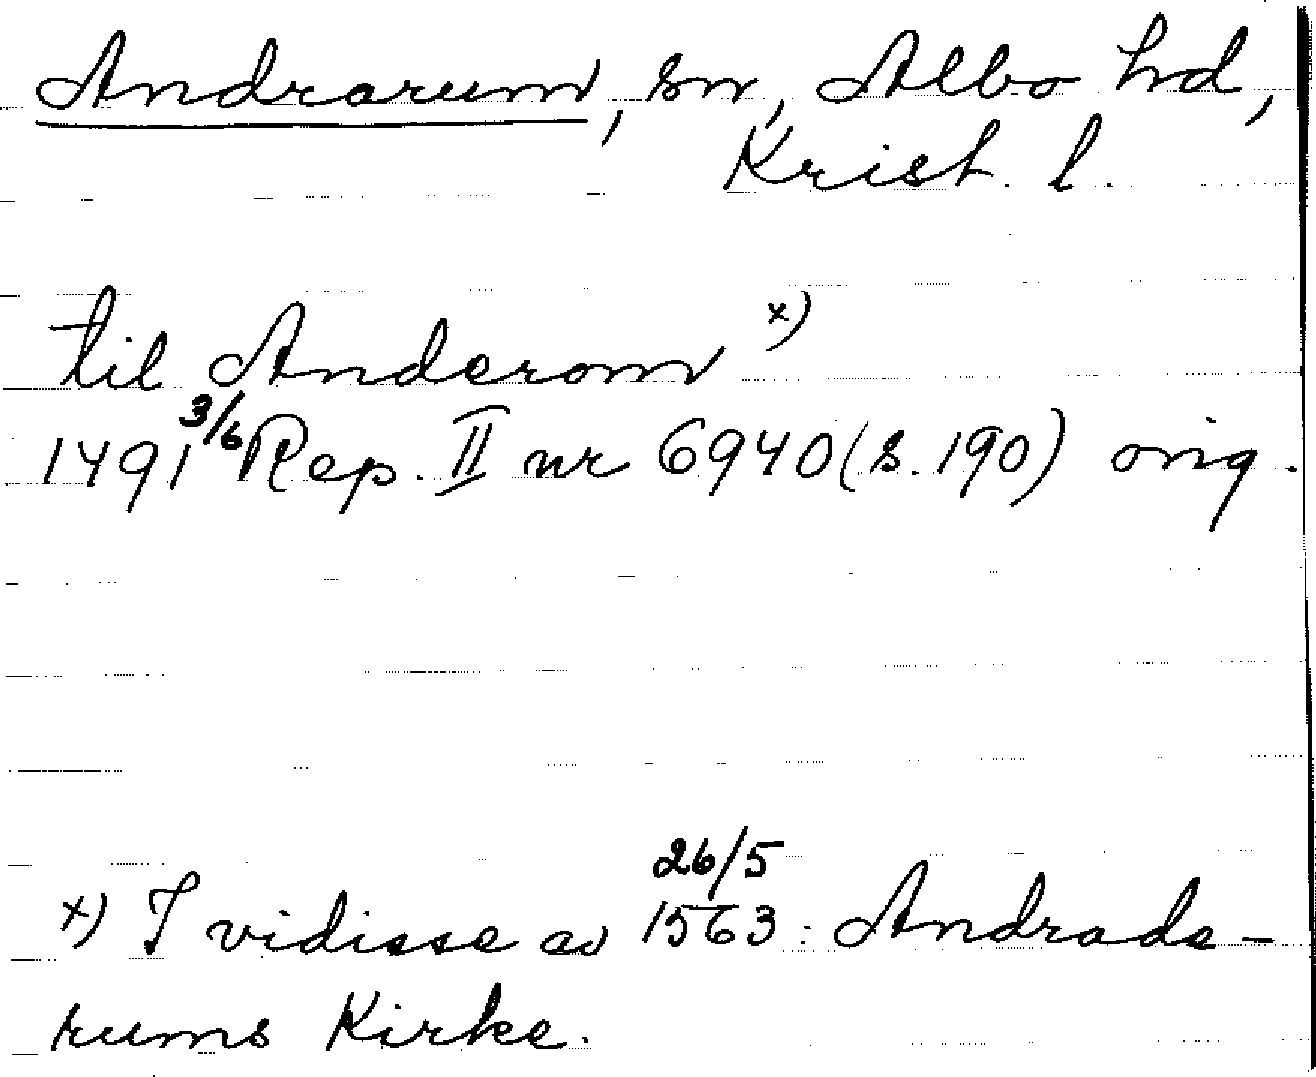 Andrarum, sn, Albo hd,
Krist. l.
til Anderom x)
1491 3/6 Rep. II nr 6940 (s. 190) orig.
x) I vidisse av 26/5 1563: Andrada-
rums Kirke.